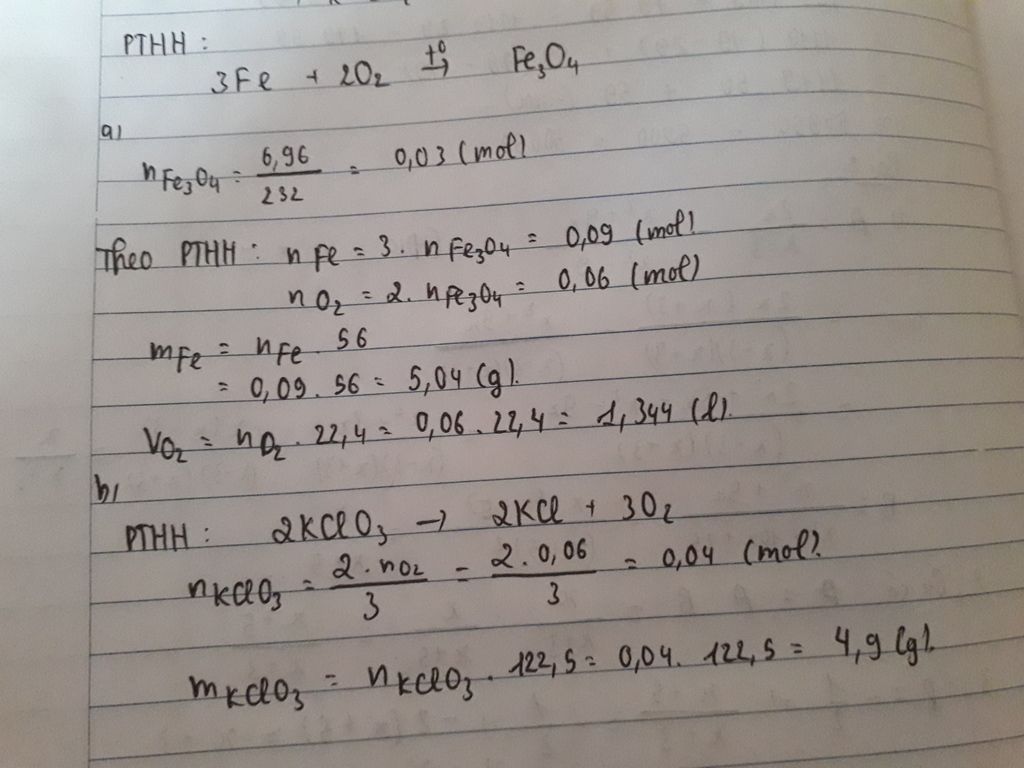 PTHH :
3Fe + 2O₂ →(t⁰) Fe₃O₄
a)
nFe₃O₄ = 6,96/232 = 0,03 (mol)
Theo PTHH : nFe = 3 . nFe₃O₄ = 0,09 (mol)
nO₂ = 2. nFe₃O₄ = 0,06 (mol)
mFe = nFe . 56
= 0,09 . 56 = 5,04 (g).
VO₂ = nO₂ . 22,4 = 0,06 . 22,4 = 1,344 (l).
b)
PTHH : 2KClO₃ → 2KCl + 3O₂
nKClO₃ = 2.nO₂/3 = 2.0,06/3 = 0,04 (mol).
mKClO₃ = nKClO₃ . 122,5 = 0,04. 122,5 = 4,9 (g).